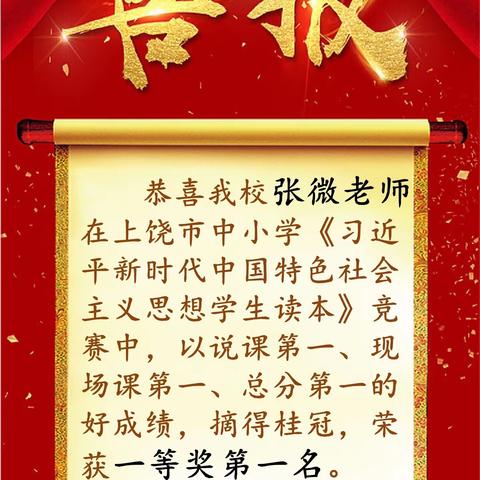 喜报
恭喜我校张微老师
在上饶市中小学《习近
平新时代中国特色社会
主义思想学生读本》竞
赛中，以说课第一、现
场课第一、总分第一的
好成绩，摘得桂冠，荣
获一等奖第一名。